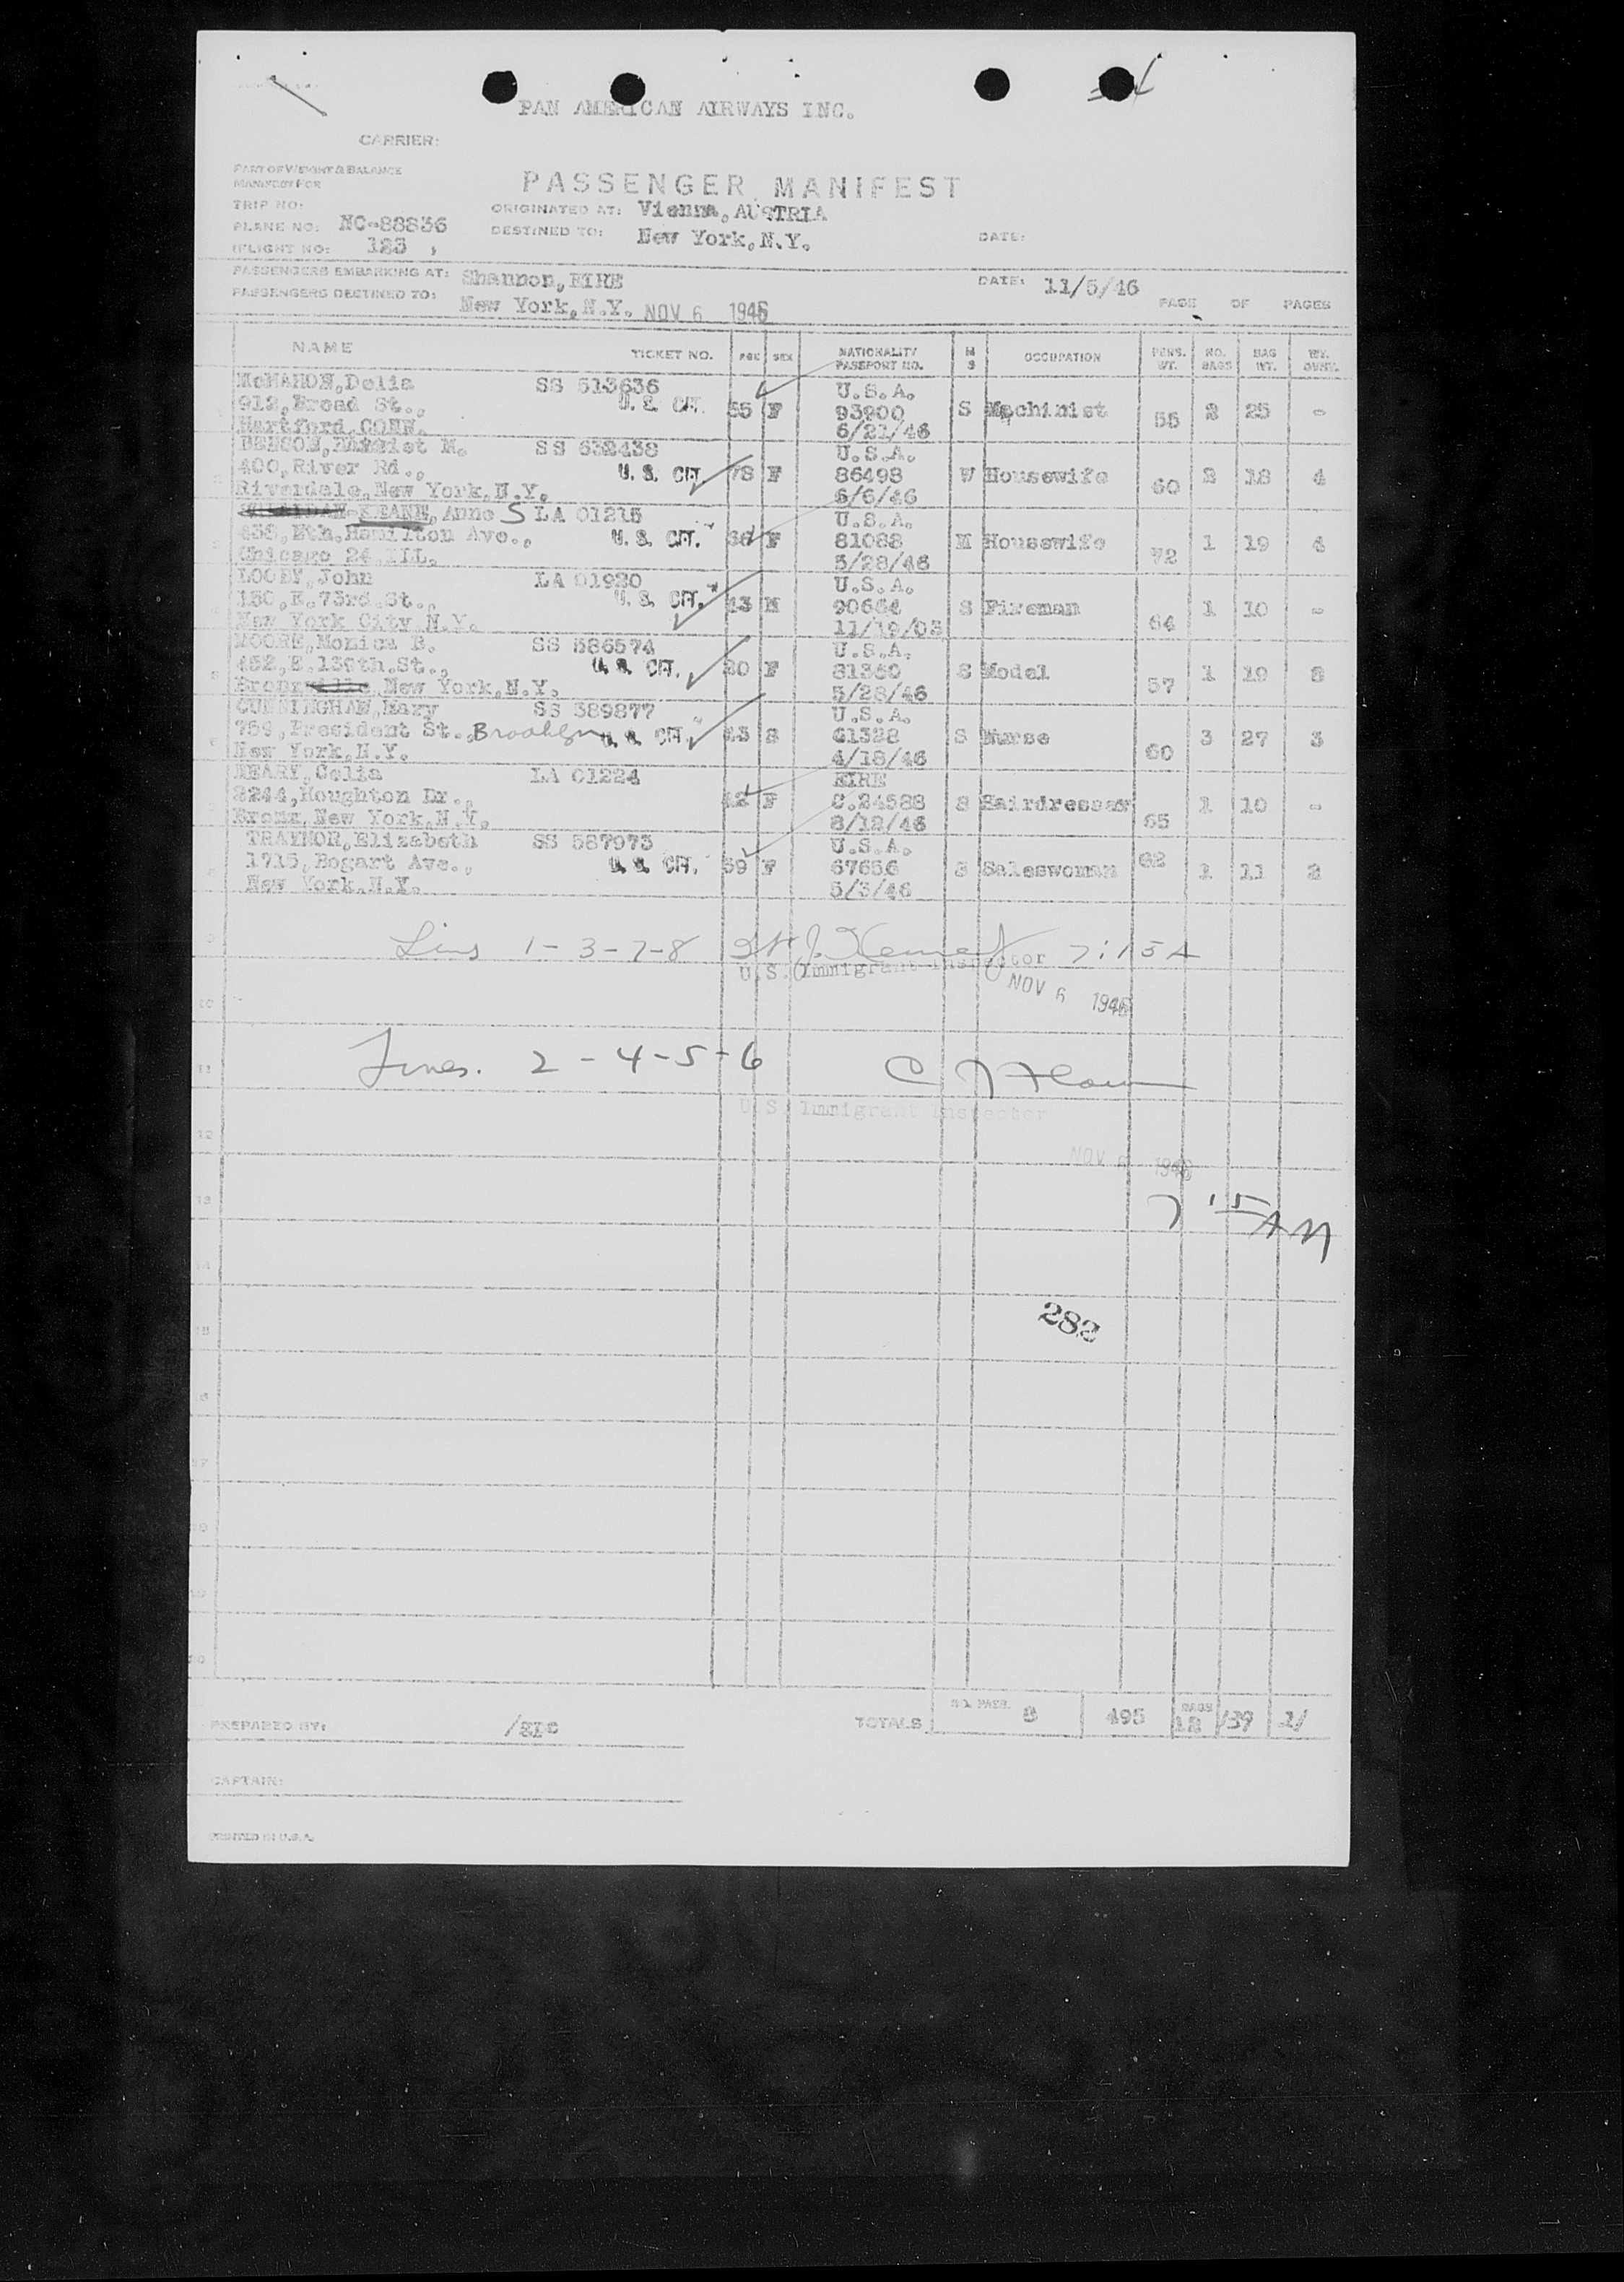 PAN AMERICAN AIRWAYS INC.
CARRIER:
PART OF WEIGHT & BALANCE
MANIFEST FOR
PASSENGER MANIFEST
TRIP NO:
ORIGINATED AT: Vienna, AUSTRIA
PLANE NO: NC-88836
DESTINED TO: New York, N.Y.
DATE:
FLIGHT NO: 123
PASSENGERS EMBARKING AT: Shannon, EIRE
DATE: 11/5/46
PASSENGERS DESTINED TO: New York, N.Y. NOV 6 1946
PAGE OF PAGES
NAME TICKET NO. AGE SEX NATIONALITY PASSPORT NO. M S OCCUPATION PENS. WT. NO. BAGS BAG WT. WT. OVRT.
McMAHON, Delia SS 513636 U.S.A.
912, Broad St., U. S. CIT. 55 F 93900 S Machinist 55 2 25 -
Hartford, CONN. 6/21/46
BENSON, M. SS 632438 U.S.A.
400, River Rd., U. S. CIT 78 F 86498 W Housewife 60 2 18 4
Riverdale, New York, N.Y. 6/6/46
KEANE, Anne S LA 01215 U.S.A.
Hamilton Ave., U. S. CIT. 36 F 81088 M Housewife 72 1 19 4
Chicago 24, ILL. 5/28/46
LOOBY, John LA 01920 U.S.A.
150, E. 73rd. St., U. S. CIT. 43 M 90664 S Fireman 64 1 10 -
New York City N.Y. 11/19/03
MOORE, Monica B. SS 586574 U.S.A.
452, E. 139th. St., U. S. CIT. 20 F 81360 S Model 57 1 19 3
Bronx, New York, N.Y. 5/28/46
CUNNINGHAM, Mary SS 589877 U.S.A.
759, President St., Brooklyn U. S. CIT. 43 S 61328 S Nurse 60 3 27 3
New York, N.Y. 4/18/46
NEARY, Celia LA 01224 EIRE
3244, Houghton Dr., 42 F C.24588 S Hairdresser 65 1 10 -
Bronx, New York, N.Y. 8/12/46
TRAYNOR, Elizabeth SS 587973 U.S.A.
1715, Bogart Ave., U. S. CIT. 39 F 67656 S Saleswoman 62 1 11 2
New York, N.Y. 5/3/46
Lines 1-3-7-8 7:15 A
U.S. Immigrant Inspector
NOV 6 1946
Lines. 2-4-5-6
U.S. Immigrant Inspector
NOV 6 1946
7 15 AM
282
TOTALS NO. PASS. 8 495 BAGS 12 139
PREPARED BY: /gpc
CAPTAIN:
PRINTED IN U.S.A.